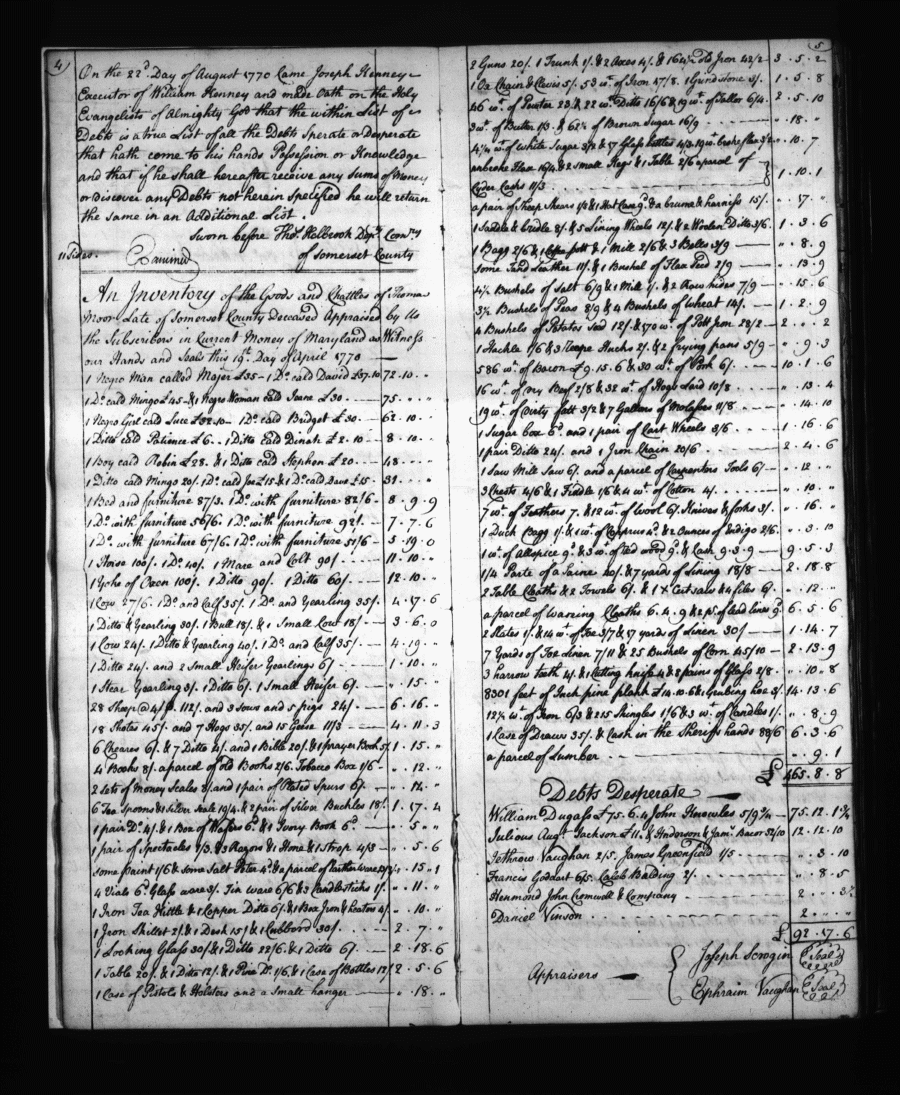 4
On the 22d Day of August 1770 Came Joseph Kenney
Executor of William Kenney and made Oath on the Holy
Evangelists of Almighty God that the within List of
Debts is a true List of all the Debts Sperate or Desperate
that hath come to his hands Possession or Knowledge
and that if he shall hereafter receive any Sums of Money
or discover any Debts not herein Specified he will return
the same in an Additional List.
Sworn before Thos. Holbrook Depy. Comsy
11 Sides. Examined of Somerset County
An Inventory of the Goods and Chattles of Thomas
Moor Late of Somerset County Deceased Appraised by Us
the Subscribers in Current Money of Maryland as Witness
our Hands and Seals this 19th. Day of April 1770
1 Negro Man called Major £35 - 1 Do. cald David £37.10 72.10 . "
1 Do. cald Mingo £45 - & 1 Negro Woman Cald Jeane £30 75 " "
1 Negro Girl cald Suce £32.10 - 1 Do. cald Bridget £30 62.10 . "
1 Ditto Cald Patience £6 - 1 Ditto Cald Dinah £2.10 8.10 . "
1 Boy cald Robin £28. & 1 Ditto cald Stephen £20 48 " "
1 Ditto cald Mingo 20/. 1 Do. cald Joe £15 & 1 Do. cald Dave £15 31 . " "
1 Bed and furniture 87/3. 1 Do. with furniture 82/6 8 . 9 . 9
1 Do. with furniture 56/6. 1 Do. with furniture 92/. 7 . 7 . 6
1 Do. with furniture 67/6. 1 Do. with furniture 51/6 3 . 19 . 0
1 Horse 100/. 1 Do. 40/. 1 Mare and Colt 90/. 11 . 10 . "
1 Yoke of Oxen 100/. 1 Ditto 90/. 1 Ditto 60/. 12.10 . "
1 Cow 27/6. 1 Do. and Calf 35/. 1 Do. and Yearling 35/. 4 . 17 . 6
1 Ditto & Yearling 30/. 1 Bull 18/. & 1 Small Cow 18/ 3 . 6 . 0
1 Cow 24/. 1 Ditto & Yearling 40/. 1 Do. and Calf 35/. 4 . 19 . "
1 Ditto 24/. and 2 Small Heifer Yearlings 6/ 1 . 10 . "
1 Stear Yearling 3/. 1 Ditto 6/. 1 Small Heifer 6/. " . 15 . "
28 Sheep @ 4/ p. 112/. and 3 Sows and 5 pigs 24/. 6 . 16 . "
18 Shotes 45/. and 7 Hogs 35/. and 15 Geese 11/3 4 . 11 . 3
6 Cheares 6/. & 7 Ditto 4/. and 1 Bible 20/. & 1 prayer Book 5/. 1 . 15 . "
4 Books 8/. a parcel of old Books 2/6. Tobacco Box 1/6 " . 12 . "
2 Sets of Money Scales 8/. and 1 pair of Plated Spurs 6/. " . 14 . "
6 Tea Spoons & 1 Silver Seale 19/4. & 2 pair of Silver Buckles 18/. 1 . 17 . 4
1 pair Do. 4/. & 1 Box of Wafers 6d. & 1 Ivory Book 6d. " . 5 . "
1 pair of Spectacles 1/3. & 3 Razors & 1 Hone & 1 Strop 4/3 " . 5 . 6
some paint 1/6 & some Salt Peter 4d. & a parcel of Earthen ware " . 15 . 1
4 Vials 6d. Glass ware 3/. Tin ware 6/6 & 3 Candlesticks 1/. " . 11 . "
1 Iron Tea Kittle & 1 Copper Ditto 6/. & 1 Box Iron & heaters 4/. " . 10 . "
1 Iron Skillet 2/. & 1 Desk 15/ & 1 Cubbord 30/. 2 . 7 . "
1 Looking Glass 30/ & 1 Ditto 22/6. & 1 Ditto 6/. 2 . 18 . 6
1 Table 20/. & 1 Ditto 12/. & 1 Pine Do. 1/6 & 1 Case of Bottles 12/ 2 . 5 . 6
1 Case of Pistols & Holsters and a Small hanger " . 18 . "
5
2 Guns 20/. 1 Trunk 1/. & 2 Axes 4/. & 164½ old Iron 42/2 3 . 5 . 2
1 Ox Chain & Clevis 5/. 53 wt. of Iron 17/8. 1 Grindstone 3/. 1 . 5 . 8
46 wt. of Pewter 23. & 22 wt. Ditto 16/6 & 19 wt. of Tallor 6/4. 2 . 5 . 10
3 wt. of Butter 1/3. & 65½ of Brown Sugar 16/9 " . 18 . "
4¼ wt. of White Sugar 3/2 & 17 Glass bottles 4/3. 19 wt. broke flax " . 10 . 7
unbroke Flax 16/4. & 2 small Kegs & 1 Table 2/6 a parcel of
Cyder Casks 11/3 1 . 10 . 1
a pair of Sheep Shears 1/2 & 1 Hat Case 9d. & a brune & harniss 15/. " . 17 . "
1 Saddle & bridle 8/. & 5 Lining Wheels 12/. & 2 Woolen Ditto 3/6. 1 . 3 . 6
1 Bagg 2/6 & 1 Coffee pott & 1 Mill 2/6 & 3 Bells 3/9 " . 8 . 9
some Tand Leather 11/. & 1 Bushel of Flax Seed 2/9 " . 13 . 9
4½ Bushels of Salt 6/9 & 1 Mill 1/. & 2 Raw hides 7/9 " . 15 . 6
3½ Bushels of Peas 8/9 & 4 Bushels of Wheat 14/. 1 . 2 . 9
4 Bushels of Potatos seed 12/. & 170 w. of Pott Iron 28/2 2 . " . 2
1 Hackle 1/6 & 3 Reape Hucks 2/. & 2 frying pans 5/9 " . 9 . 3
586 wt. of Bacon £9.15.6 & 30 wt. of Pork 6/. 10 . 1 . 6
16 wt. of dry Beef 2/8 & 32 wt. of Hogs Lard 10/8 " . 13 . 4
19 wt. of Dirty fatt 3/2 & 7 Gallons of Molasses 11/8 " . 14 . 10
1 Sugar box 6d. and 1 pair of Cart Wheels 3/6 1 . 16 . 6
1 pair Ditto 24/. and 1 Iron Chain 20/6 2 . 4 . 6
1 Saw Mill Saw 6/. and a parcel of Carpenters Tools 6/ " . 12 . "
3 Chests 4/6 & 1 Fiddle 1/6 & 4 wt. of Cotton 4/. " . 10 . "
7 wt. of Feathers 7. & 12 w. of Wool 6/. Knives & forks 3/. " . 16 . "
1 Duck Bagg 1/. & 1 wt. of Copprus 4d. & 2 Ounces of Indigo 2/6. " . 3 . 10
1 wt. of Allspice 9d. & 3 wt. of red wood 9d. & Cash 9.3.9 9 . 5 . 3
1/4 Parte of a Saine 20/. & 7 yards of Lining 18/8 2 . 18 . 8
2 Table Cloaths & 2 Towels 6/. & 1 X Cut saw & 4 files 6/. " . 12 . "
a parcel of waring Cloaths 6.4.9 & 2 ps. of lead lines 9d. 6 . 5 . 6
2 Slates 1/. & 14 wt. of Toe 3/7 & 17 yards of Linen 30/ 1 . 14 . 7
7 Yards of Toe Linen 7/11 & 25 Bushels of Corn 45/10 2 . 13 . 9
3 harrow teeth 4/. & 1 Cutting knife 4 & 2 pains of Glass 2/8 " . 10 . 8
8301 feet of Inch pine plank £14.10.6 & 1 Grubing hoe 3/. 14 . 13 . 6
12½ wt. of Iron 6/3 & 215 Shingles 1/6 & 3 wt. of Candles 1/. " . 8 . 9
1 Case of Draws 35/. & Cash in the Sheriffs hands 88/6 6 . 3 . 6
a parcel of Lumber " . 9 . 1
£ 465 . 8 . 8
Debts Desperate
William Dugass £75.6.4 John Knowles 5/9¾ 75 . 12 . 1¾
Julious Augt. Jackson £11. & Anderson & Jams. Bacor 32/10 12 . 12 . 10
Jethrow Vaughan 2/5. James Greenfield 1/5 " . 3 . 10
Francis Goddart 6/5. Caleb Balding 2/. " . 8 . 5
Henmond John Cromwell & Company 2 . " . 3½
Daniel Vinson 2 . " . "
£ 92 . 17 . 6
Appraisers Joseph Scrogin Seal
Ephraim Vaughan Seal